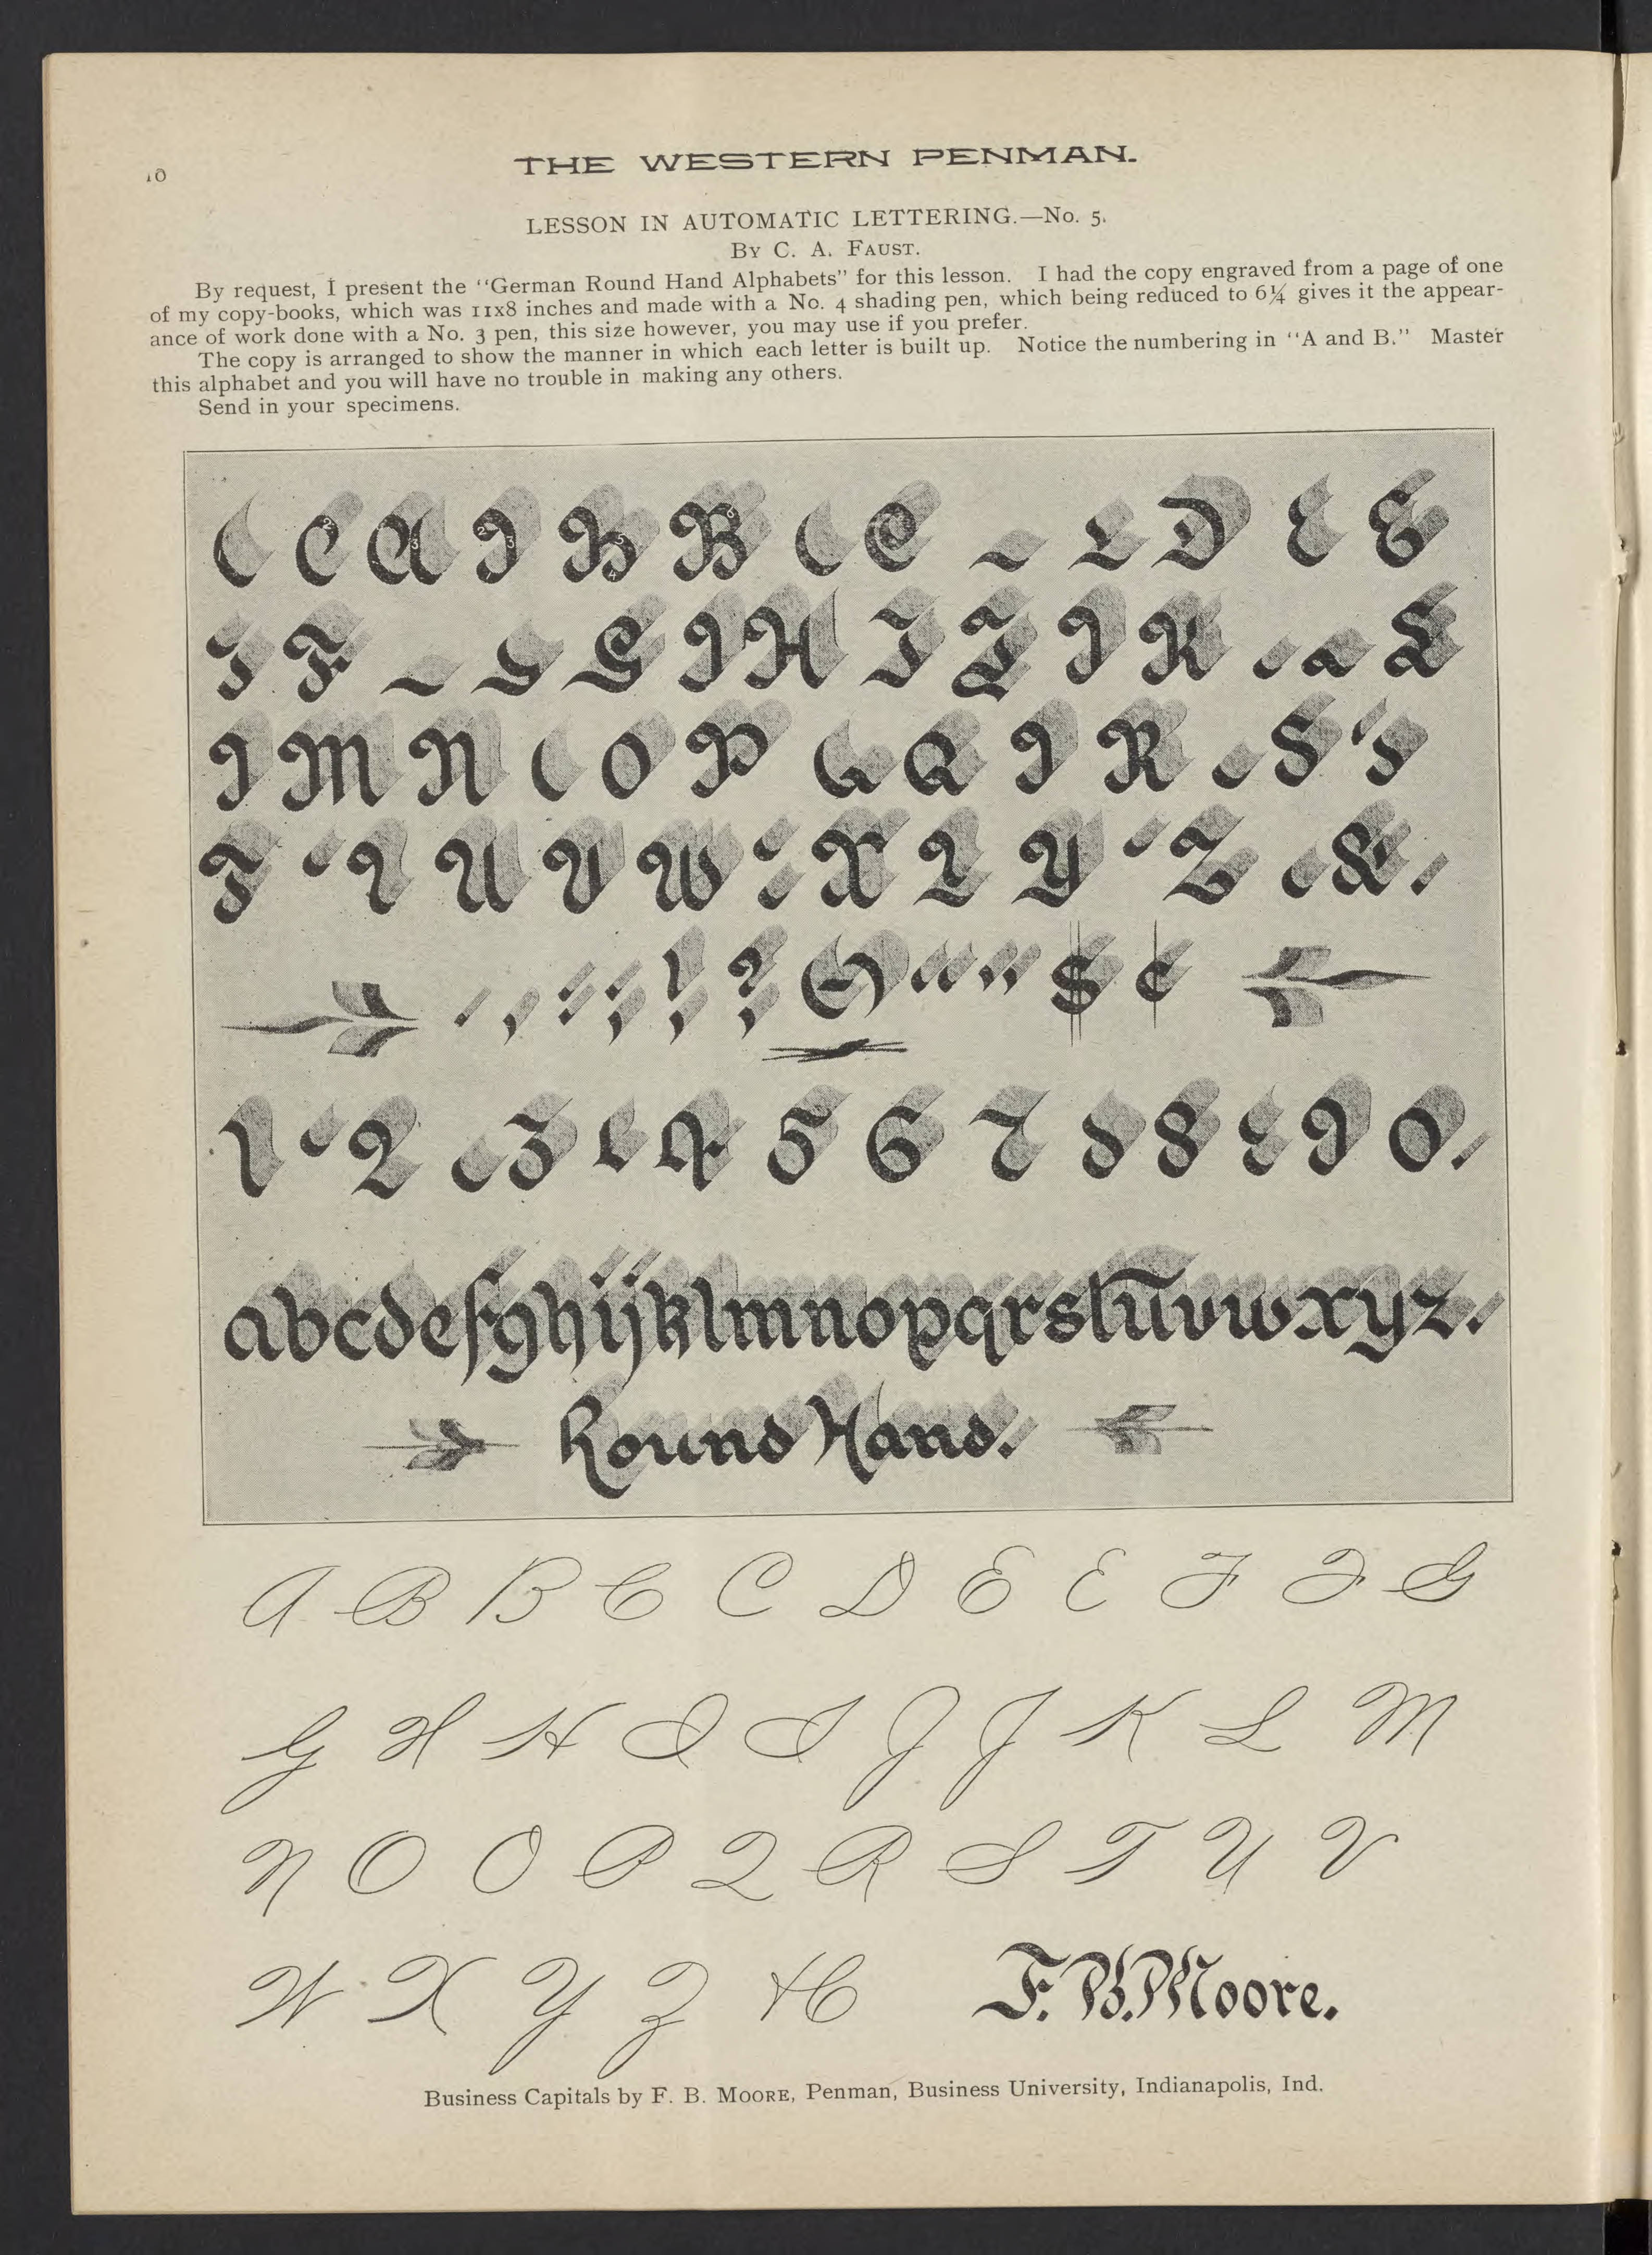 10
THE WESTERN PENMAN.
LESSON IN AUTOMATIC LETTERING.—No. 5.
By C. A. Faust.
By request, I present the "German Round Hand Alphabets" for this lesson. I had the copy engraved from a page of one
of my copy-books, which was 11x8 inches and made with a No. 4 shading pen, which being reduced to 6¼ gives it the appear-
ance of work done with a No. 3 pen, this size however, you may use if you prefer.
The copy is arranged to show the manner in which each letter is built up. Notice the numbering in "A and B." Master
this alphabet and you will have no trouble in making any others.
Send in your specimens.
A B C D E
F G H I K L
M N O P Q R S
T U V W X Y Z &.
. , : ; ! ? " " $ ¢
1 2 3 4 5 6 7 8 9 0.
abcdefghijklmnopqrstuvwxyz.
Round Hand.
A B B C C D E E F F G
G H H I I J J K L M
N O O P Q R S T U V
W X Y Z H F. B. Moore.
Business Capitals by F. B. Moore, Penman, Business University, Indianapolis, Ind.